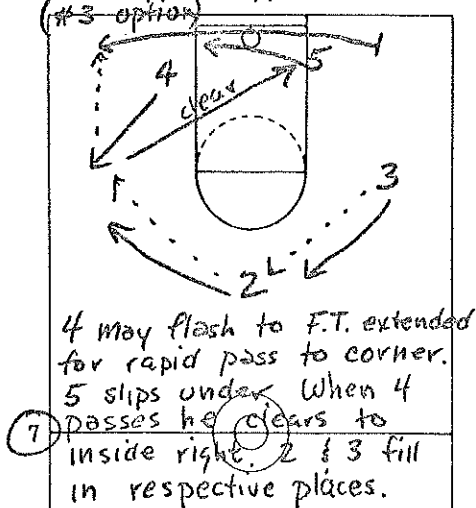 (#3 option)
4
5
1
clear
1
3
2
4 may flash to F.T. extended
for rapid pass to corner.
5 slips under. When 4
passes he clears to
7
inside right. 2 & 3 fill
in respective places.